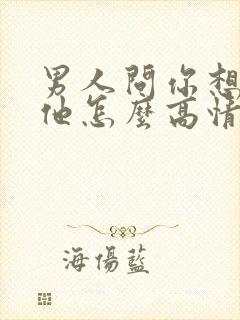 男人問你想
他怎麼高情
海傷藍